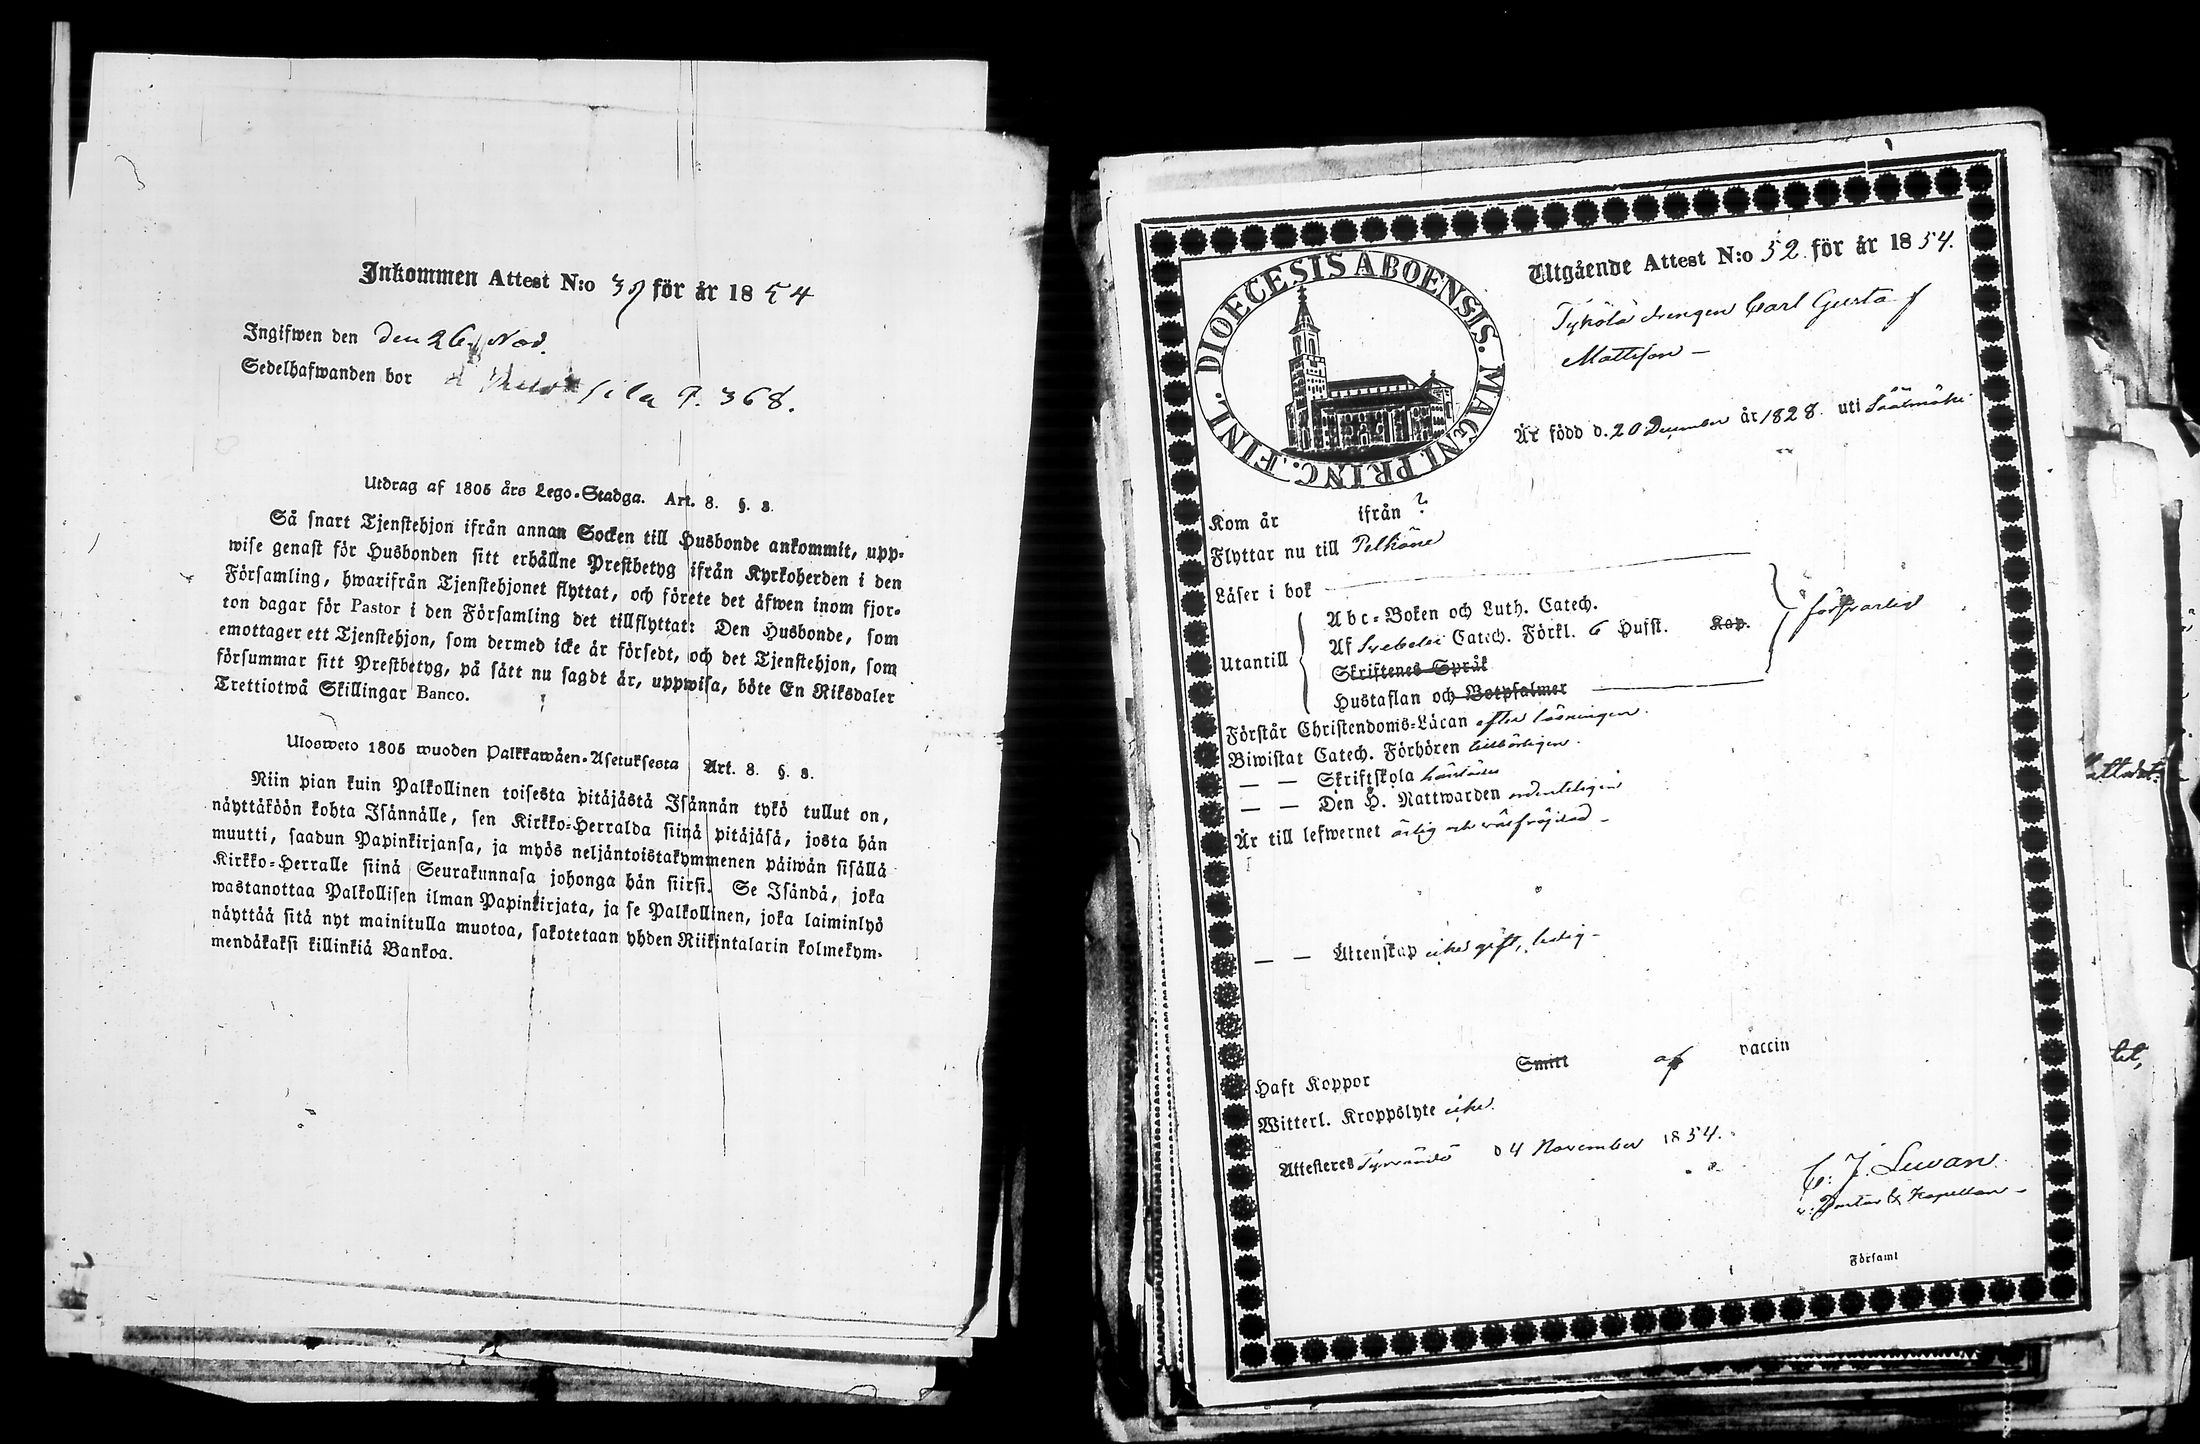 Inkommen Attest N:o 39 för år 1854
Ingifwen den den 26 Nov.
Sedelhafwanden bor P. 368.
Utdrag af 1805 års Lego-Stadga. Art. 8. §. 8.
Så snart Tjenstehjon ifrån annan Socken till Husbonde ankommit, upp-
wise genast för Husbonden sitt erhållne Prestbetyg ifrån Kyrkoherden i den
Församling, hwarifrån Tjenstehjonet flyttat, och förete det äfwen inom fjor-
ton dagar för Pastor i den Församling det tillflyttat: Den Husbonde, som
emottager ett Tjenstehjon, som dermed icke är försedt, och det Tjenstehjon, som
försummar sitt Prestbetyg, på sätt nu sagdt är, uppwisa, böte En Riksdaler
Trettiotwå Skillingar Banco.
Ulosweto 1805 wuoden Palkkawäen-Asetuksesta Art. 8. §. 8.
Niin pian kuin Palkollinen toisesta pitäjästä Isännän tykö tullut on,
näyttäköön kohta Isännälle, sen Kirkko-Herralda siinä pitäjäsä, josta hän
muutti, saadun Papinkirjansa, ja myös neljäntoistakymmenen päiwän sisällä
Kirkko-Herralle siinä Seurakunnasa johonga hän siirsi. Se Isändä, joka
wastanottaa Palkollisen ilman Papinkirjata, ja se Palkollinen, joka laiminlyö
näyttää sitä nyt mainitulla muotoa, sakotetaan yhden Riikintalarin kolmekym-
mendäkaksi killinkiä Bankoa.
DIOECESIS ABOENSIS. MAGNI PRINC. FINL.
Utgående Attest N:o 52 för år 1854.
drengen Carl Gustaf
Mattsson
Är född d. 20 December år 1828 uti Sääxmäki
Kom år ifrån ?
Flyttar nu till Pelkäne
Läser i bok
Utantill
Abc-Boken och Luth. Catech.
Af Svebelii Catech. Förkl. 6 Hufst. Kap.
Skriftenes Språk
Hustaflan och Botpsalmer
försvarligt
Förstår Christendoms-Läran efter läsningen.
Biwistat Catech. Förhören tillbörligen.
— — Skriftskola
— — Den H. Nattwarden ordenteligen
Är till lefwernet ärlig och välfräjdad
— — Äktenskap icke gift, ledig
Haft Koppor Smitt af vaccin
Witterl. Kroppslyte icke.
Attesteres Tyrvändö d 4 November 1854.
C. J. Lewan.
v. Pastor & Kapellan
Församl